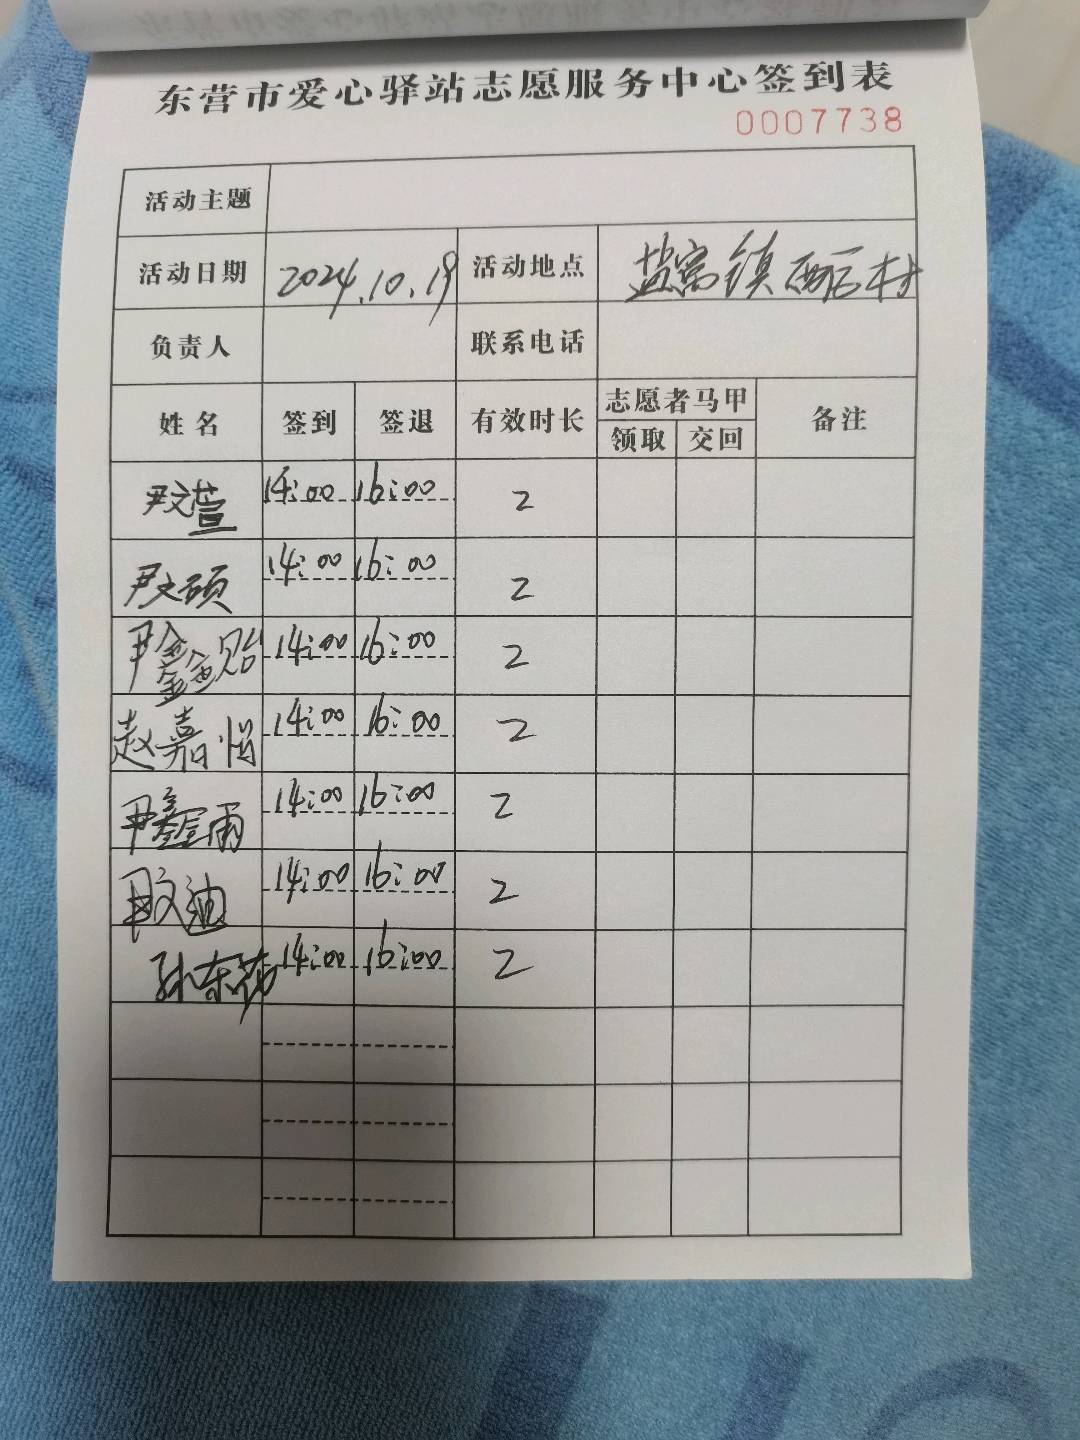 东营市爱心驿站志愿服务中心签到表
0007738
活动主题
活动日期 2024.10.19 活动地点 盐窝镇西后村
负责人 联系电话
姓名 签到 签退 有效时长 志愿者马甲 备注
领取 交回
尹文萱 14:00 16:00 2
尹文硕 14:00 16:00 2
尹鑫贻 14:00 16:00 2
赵嘉怡 14:00 16:00 2
尹鑫雨 14:00 16:00 2
尹文迪 14:00 16:00 2
孙东 14:00 16:00 2